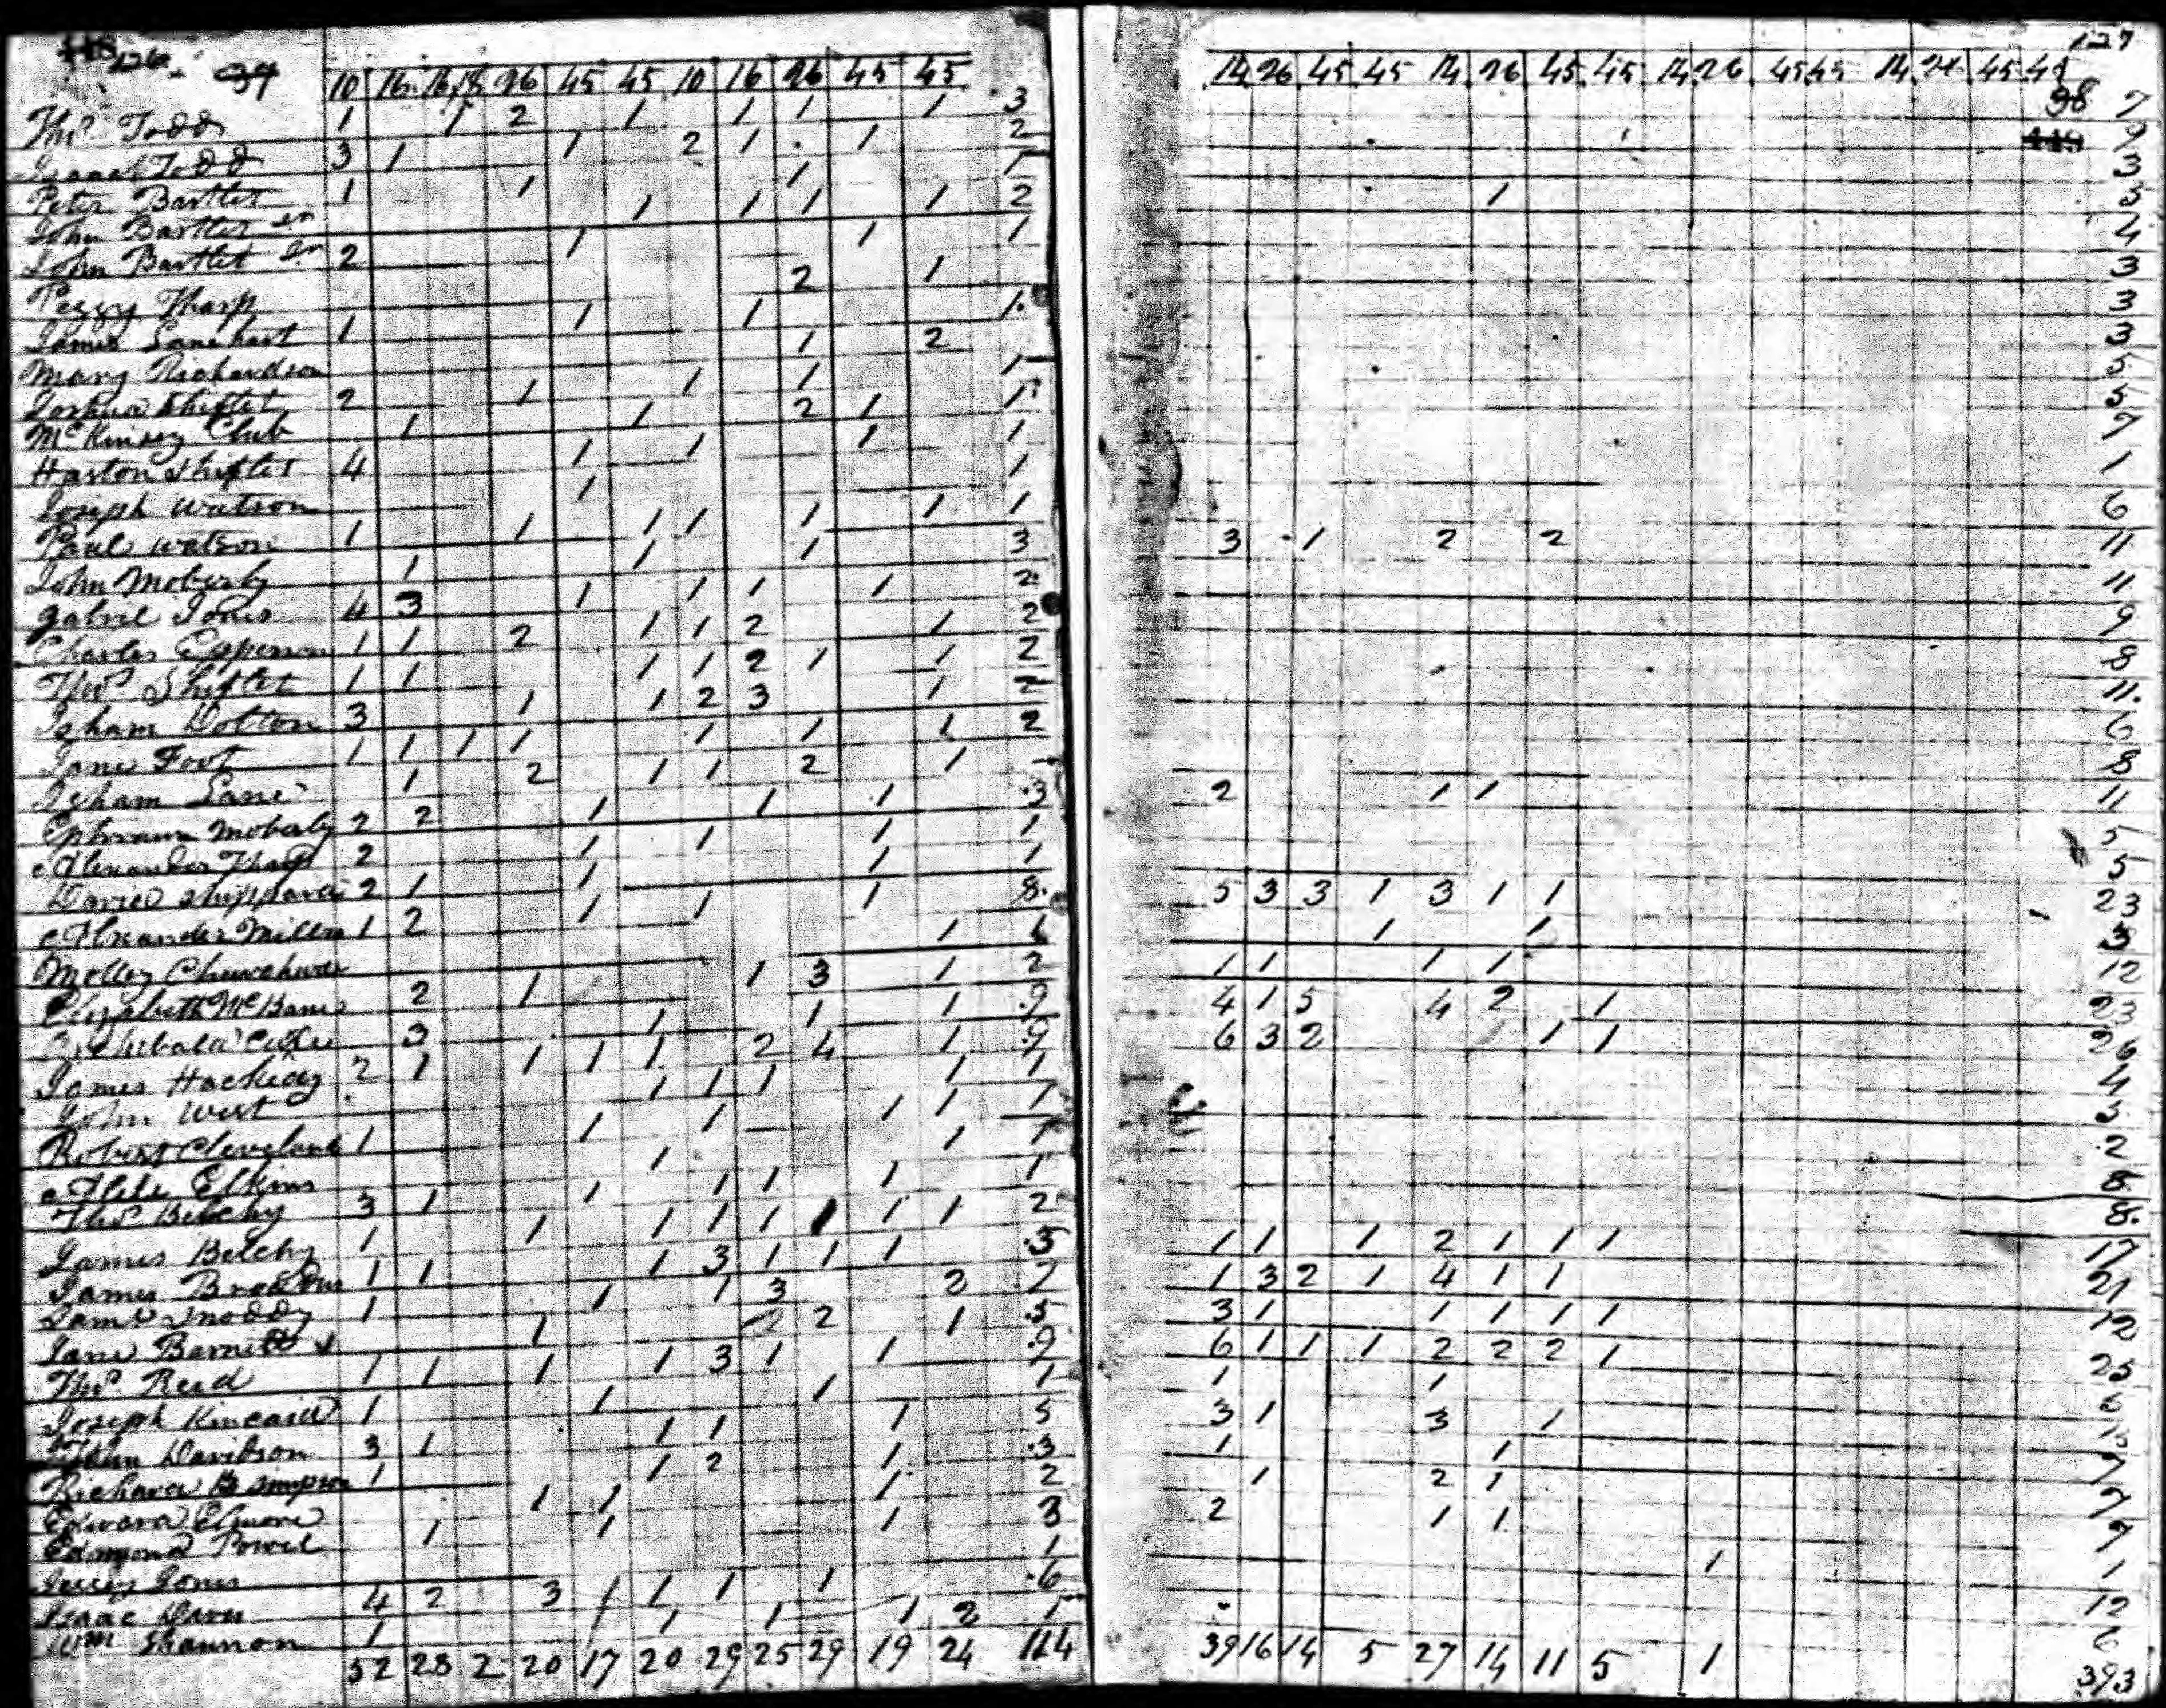 126 127
10 16 16,18 26 45 45 10 16 26 45 45 14 26 45 45 14 26 45 45 14 26 45 45 14 26 45 45
38
Thos. Todd 1 1 2 1 1 1 1 3 7
Isaac Todd 3 1 1 2 1 1 2 9
Peter Bartlet 1 1 1 1 3
John Bartlet 1 1 1 1 2 1 3
John Bartlet Jr 2 1 1 1 4
Peggy Tharp 2 1 3
James Lanehart 1 1 1 1 3
Mary Richardson 1 2 3
Joshua Shiflet 2 1 1 1 1 5
McKinsey Club 1 1 2 1 1 5
Haston Shiflet 4 1 1 1 1 7
Joseph Watson 1 1 1
Paul Watson 1 1 1 1 1 1 1 6
John Moberly 1 1 1 3 3 1 2 2 11
Gabriel Jones 4 3 1 1 1 1 2 11
Charles 1 1 2 1 1 2 1 2 9
Thos. Shiflet 1 1 1 1 2 1 1 2 8
Isham 3 1 1 2 3 1 2 11
Jane Foot 1 1 1 1 1 1 1 2 6
Isham Lane 1 2 1 1 2 1 8
Ephraim Moberly 2 2 1 1 1 3 2 1 1 11
Alexander Tharp 2 1 1 1 1 5
David Shippard 2 1 1 1 1 5
Alexander Miller 1 2 1 1 1 8 5 3 3 1 3 1 1 23
Molley 1 1 1 1 3
Elizabeth McBane 2 1 1 3 1 2 1 1 1 1 12
3 1 1 1 9 4 1 5 4 2 1 23
James 2 1 1 1 1 2 4 1 9 6 3 2 1 1 1 26
John West 1 1 1 1 1 4
Robert Cleveland 1 1 1 1 1 1
Elkins 1 1 1 2
Thos. Belchy 3 1 1 1 1 1 1 8
James Belchy 1 1 1 1 1 1 1 2 8
James 1 1 1 3 1 1 1 3 1 1 1 2 1 1 1 17
Snoddy 1 1 1 3 2 1 3 2 1 4 1 1 21
Jane Barnett 1 2 2 1 5 3 1 1 1 1 1 12
Thos. Reed 1 1 1 1 3 1 1 9 6 1 1 1 2 2 2 1 25
Joseph Kincaid 1 1 1 1 1 1
John Davidson 3 1 1 1 1 5 3 1 3 1
Richard B Simpson 1 1 2 1 3 1 1 7
Edward Elmore 1 1 1 2 1 2 1 7
Edmond Powel 1 1 1 3 2 1 1 7
Jessey Jones 1 1 1
Isaac 4 2 3 1 1 1 1 6 12
Wm Shannon 1 1 1 1 2 1 6
52 28 2 20 17 20 29 25 29 19 24 114 39 16 14 5 27 14 11 5 1 393